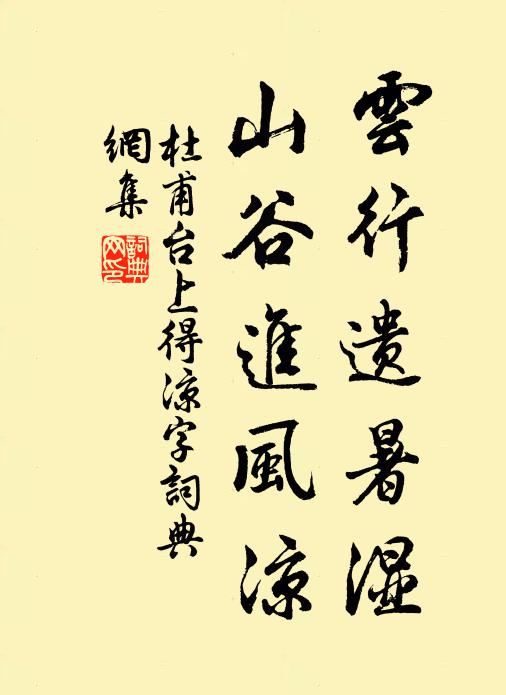 雲行遺暑濕
山谷進風涼
杜甫台上得涼字詞典
網集
詞典
网印